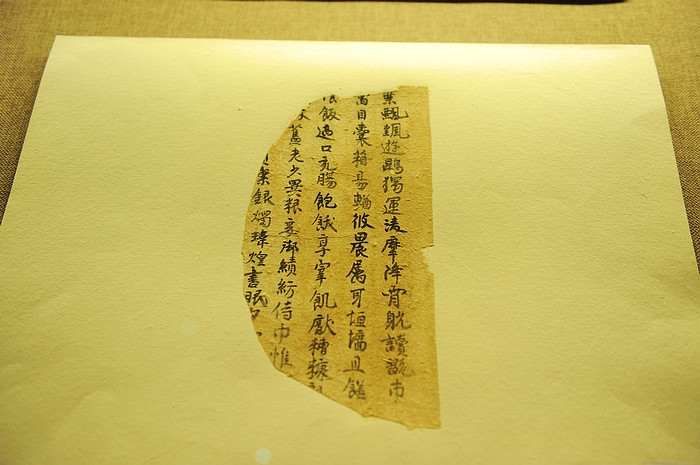 葉飄颻遊鵾獨運淩摩降霄躭讀翫市
寓目囊箱易輶彼畏屬耳垣墻且饍
飯適口充腸飽飫享宰飢猒糟糠
舊老少異粮妾御績紡侍巾帷
潔銀燭煒煌晝眠夕